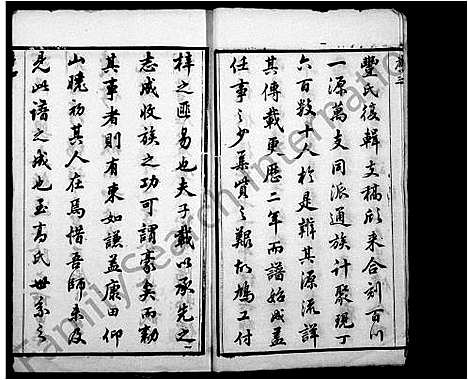 豐氏復輯支稿欣來合刻百川
一源萬支同派通族計聚現丁
六百数十人於是辨其源流詳
其傳載更歷二年而譜始成蓋
任事之少集貲之艱故鳩工付
梓之匪易也夫子載以承先之
志成收族之功可謂豪矣而勤
其事者則有東如謙益康田仰
山曉初其人在焉惜吾師未及
見此譜之成也至高氏世系之
FamilySearch International